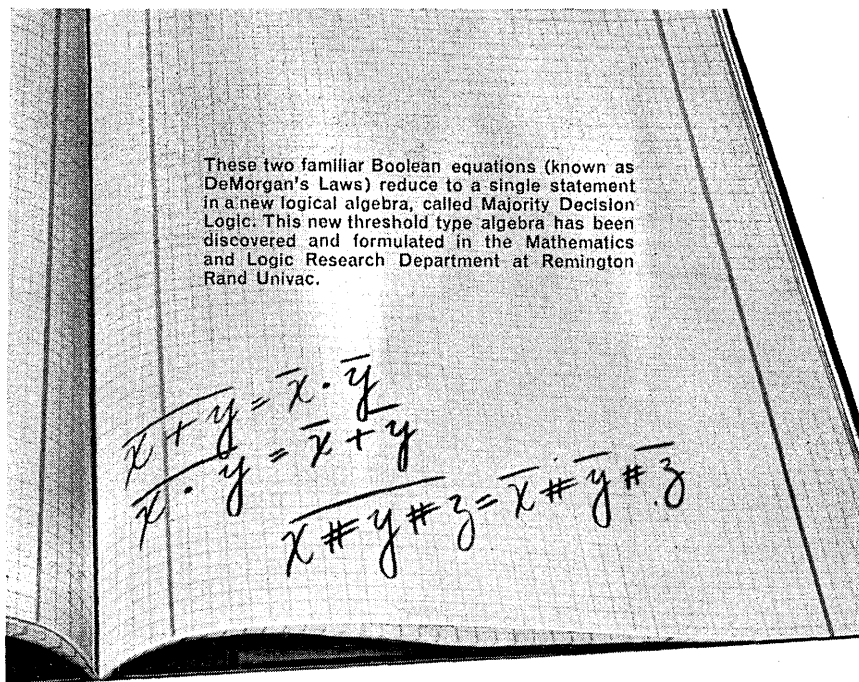 These two familiar Boolean equations (known as
DeMorgan's Laws) reduce to a single statement
in a new logical algebra, called Majority Decision
Logic. This new threshold type algebra has been
discovered and formulated in the Mathematics
and Logic Research Department at Remington
Rand Univac.
x̅ ̅+̅ ̅y̅ = x̅ · y̅
x̅ ̅·̅ ̅y̅ = x̅ + y̅
x̅ ̅#̅ ̅y̅ ̅#̅ ̅z̅ = x̅ # y̅ # z̅